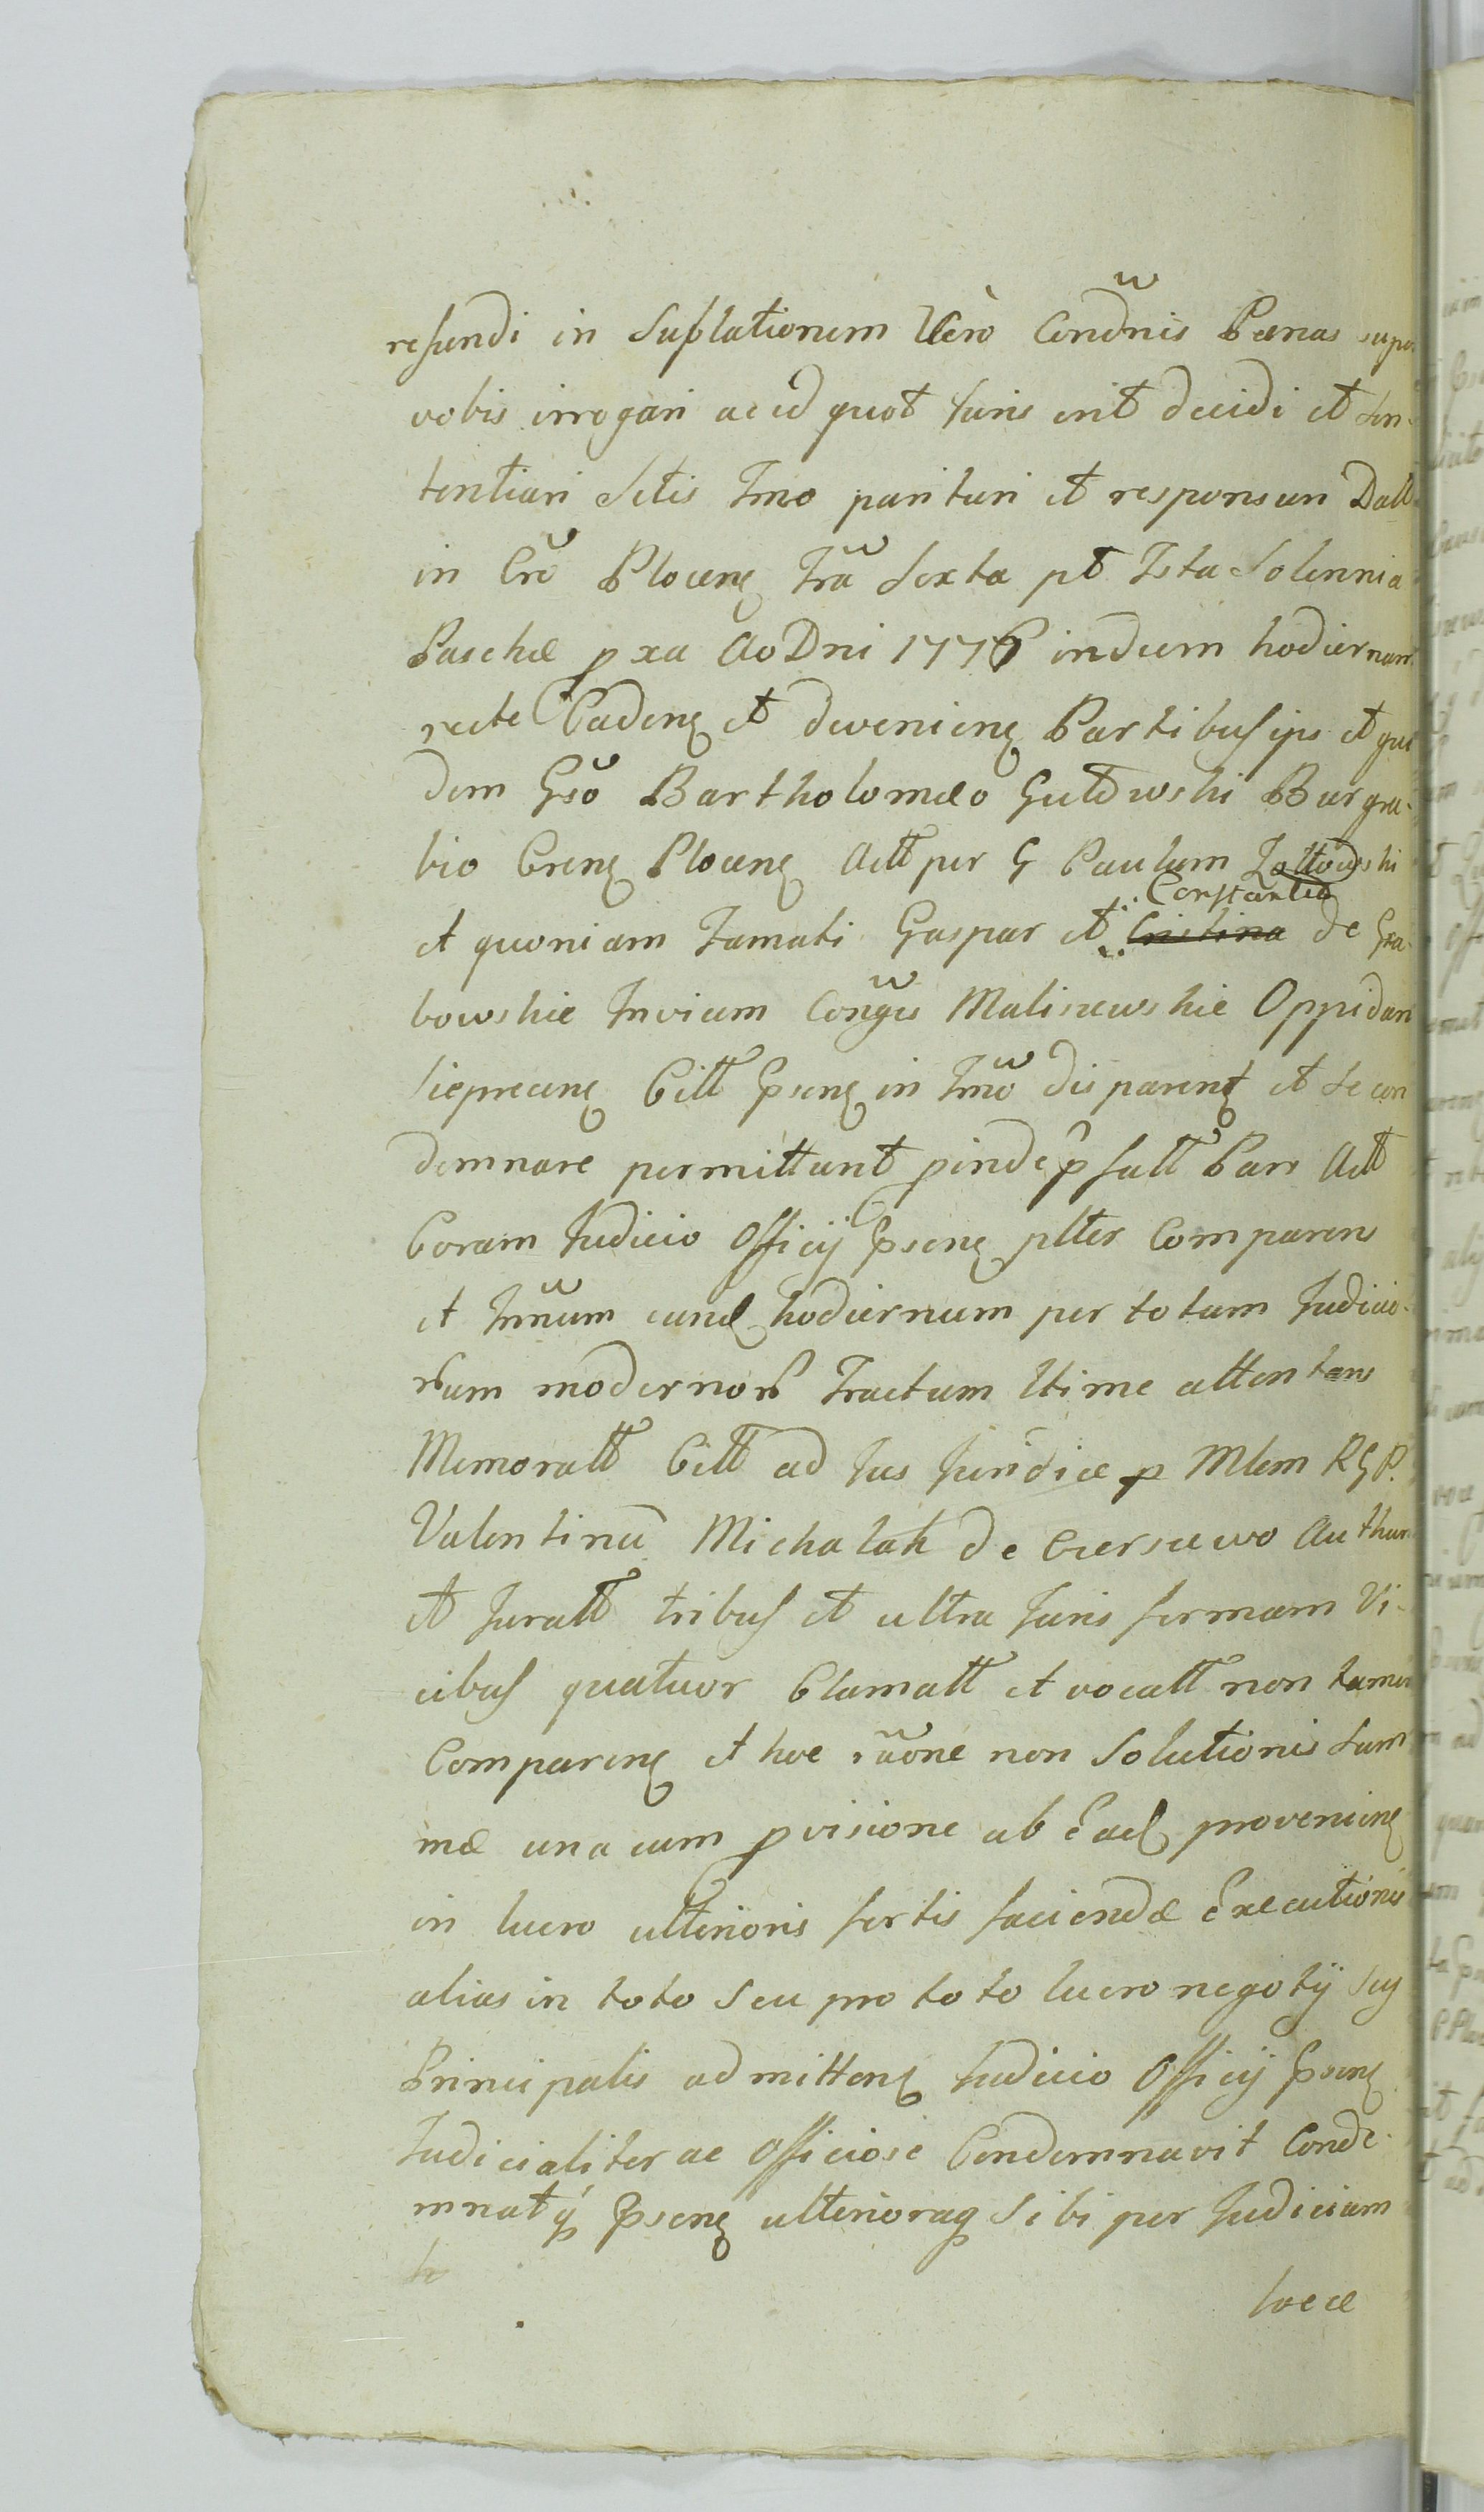 refundi in Suplationem Vero Condnis Pænas super
vobis irrogari ac id quot Juris erit decidi et Sen-
tentiari Sitis Tmo parituri et responsuri Datt
in Cro Plocen Fra Sexta pt Ista Solennia
Paschæ pxa Ao Dni 1776 in diem hodiernam
recte Caden et devenien Partibus ips et qui
dem Gso Bartholomæo Gutowski Burgra-
bio Cren Plocen Actt per G Paulum Zottowski
et quoniam Famati Gaspar et Cristina Constantia de Gra-
bowskie Invicem Congs Malisewskie Oppidani
Sieprecen Citt Psen in Tmo disparent et se con
demnare permittunt pinde p fatt Pars Actt
Coram Judicio Officij Psen plter Comparens
et Tmnum eund hodiernum per totum Judicio-
rum modernor Tractum ltime attentans
Memoratt Citt ad Jus Juridice p Mlem RGP.
Valentinu Michalak de Ciersewo Authen
et Juratt tribus et ultra Juris formam Vi-
cibus quatuor Clamatt et vocatt non tamen
Comparen et hoc raone non Solutionis Sum
mæ una cum pvisione ab Ead provenien
in lucro ulterioris fortis faciendæ Executionis
alias in toto Seu pro toto lucro negotij Sui
Principalis admitten Judicio Officij Psen
Judicialiter ac Officiose Condemnavit Conde-
mnatq Psen ulterioraq Sibi per Judicium
hocce